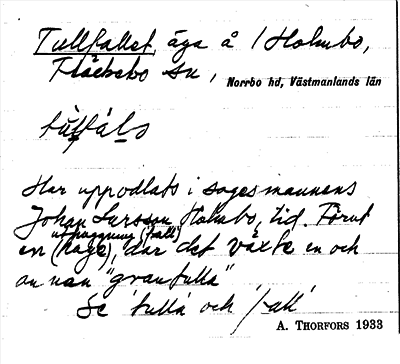 Tullfallet, äga å / Holmbo,
Fläckebo sn, Norrbo hd, Västmanlands län
Har uppodlats i sagesmannens
Johan Larsson, Holmbo, tid. Förut
uthuggning (fall)
en (hage), där det växte en och
annan "grantulla"
Se tulla och fall
A. THORFORS 1933